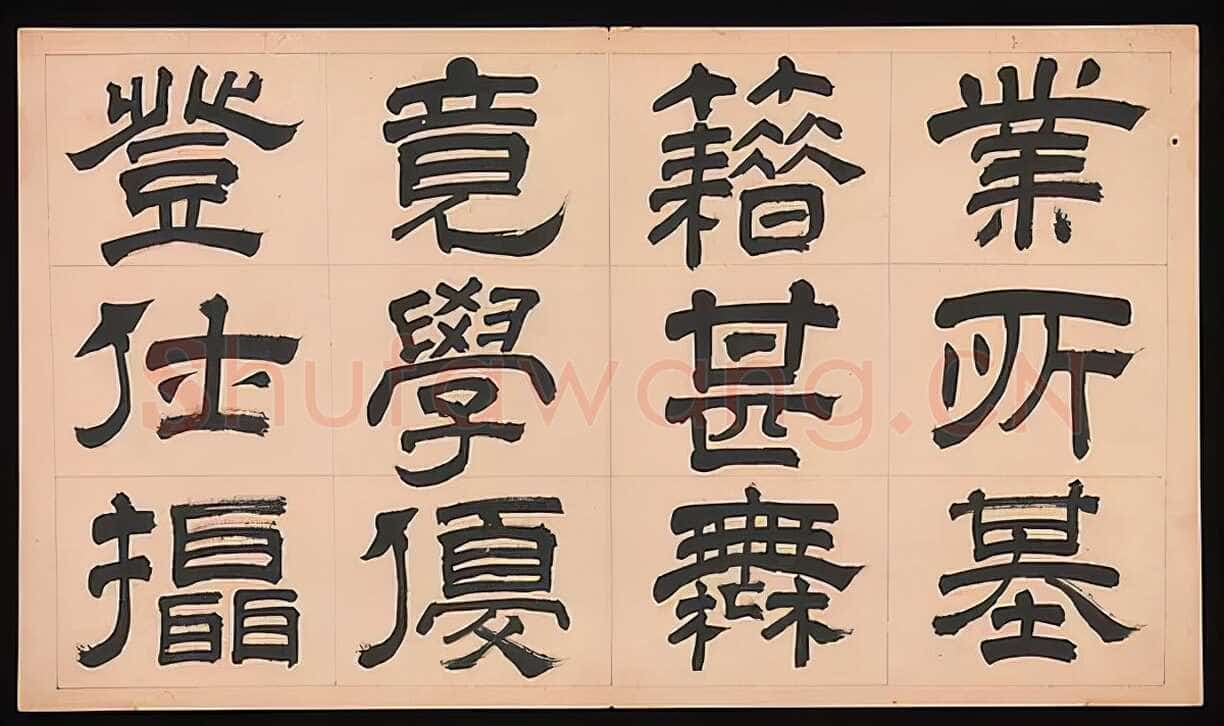 業所基
籍甚無
竟學優
登仕攝
Shufawang.CN